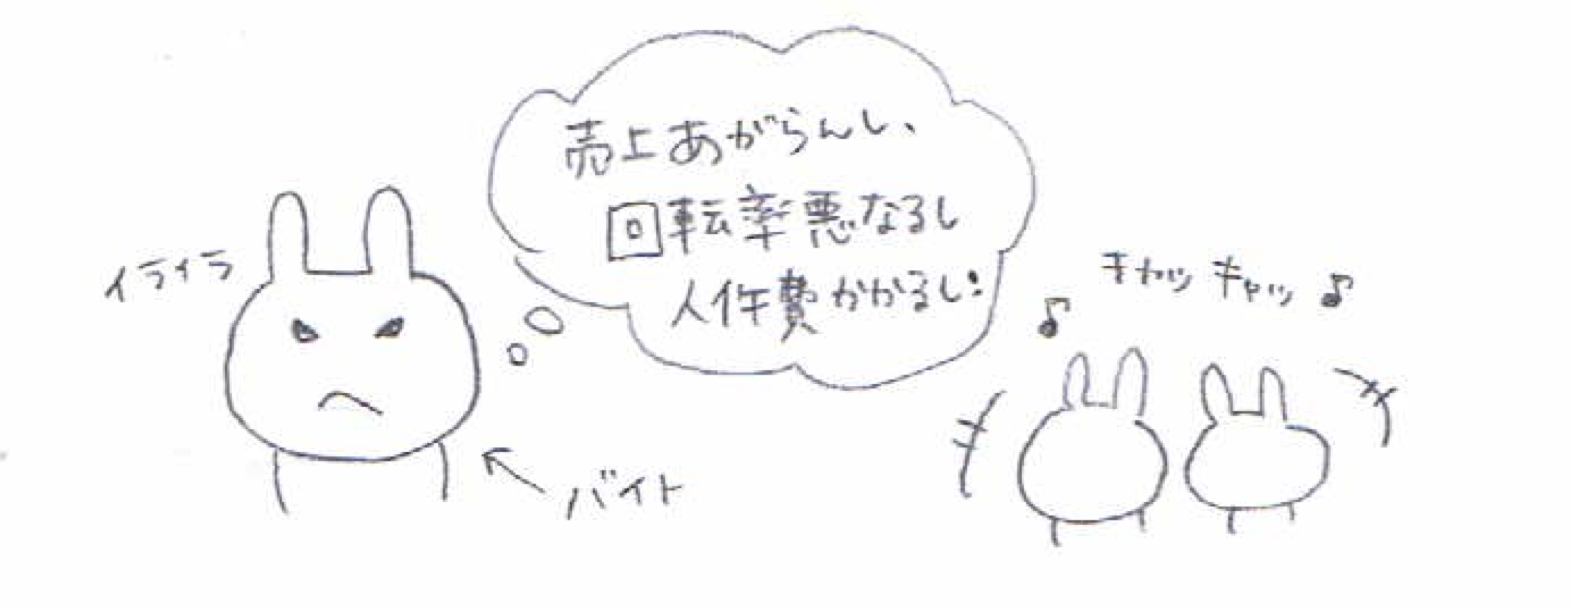 売上あがらんし、
回転率悪なるし
人件費かかるし:
イライラ
キャッキャッ♪
♪
バイト